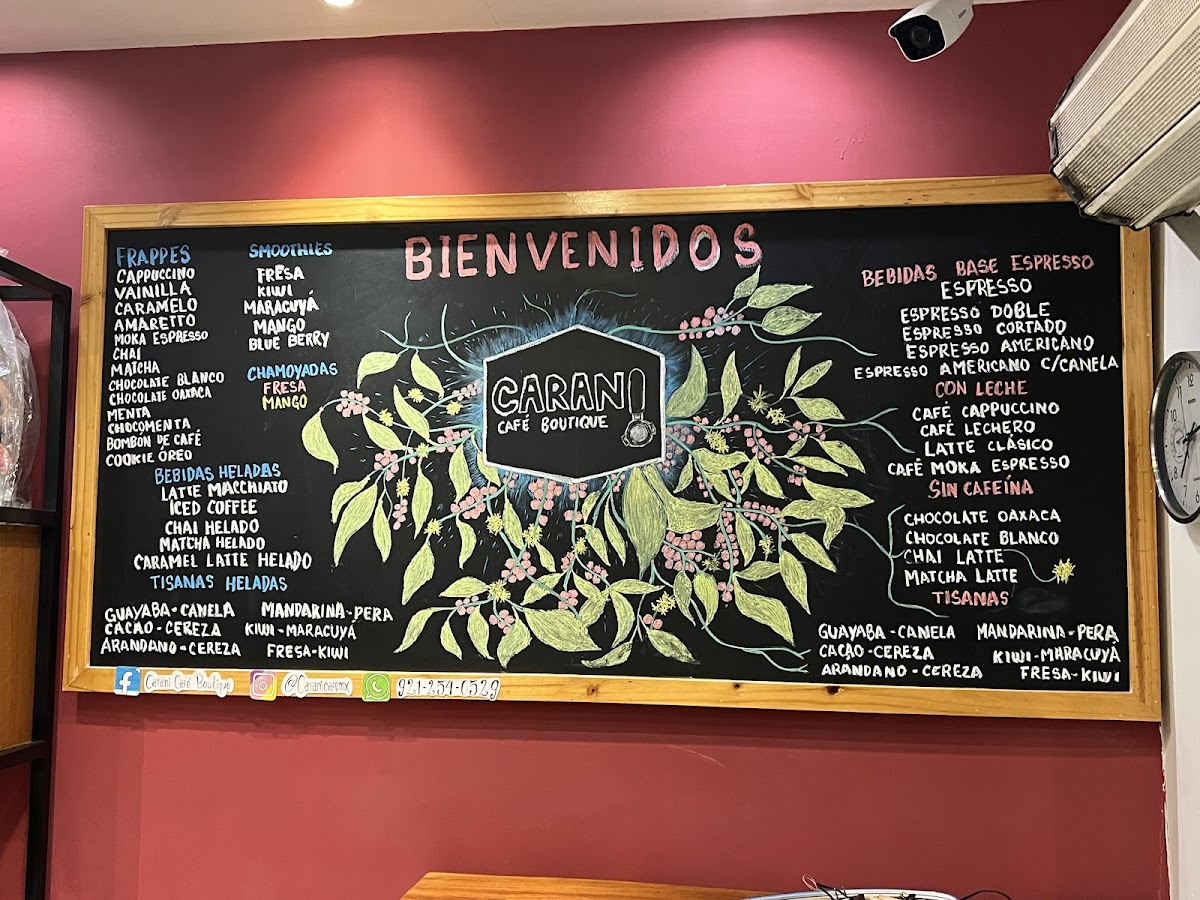 BIENVENIDOS
FRAPPES
CAPPUCCINO
VAINILLA
CARAMELO
AMARETTO
MOKA ESPRESSO
CHAI
MATCHA
CHOCOLATE BLANCO
CHOCOLATE OAXACA
MENTA
CHOCOMENTA
BOMBÓN DE CAFÉ
COOKIE ÓREO
SMOOTHIES
FRESA
KIWI
MARACUYÁ
MANGO
BLUE BERRY
CHAMOYADAS
FRESA
MANGO
BEBIDAS HELADAS
LATTE MACCHIATO
ICED COFFEE
CHAI HELADO
MATCHA HELADO
CARAMEL LATTE HELADO
TISANAS HELADAS
GUAYABA-CANELA MANDARINA-PERA
CACAO-CEREZA KIWI-MARACUYÁ
ARANDANO-CEREZA FRESA-KIWI
CARANI
CAFÉ BOUTIQUE
BEBIDAS BASE ESPRESSO
ESPRESSO
ESPRESSO DOBLE
ESPRESSO CORTADO
ESPRESSO AMERICANO
ESPRESSO AMERICANO C/CANELA
CON LECHE
CAFÉ CAPPUCCINO
CAFÉ LECHERO
LATTE CLÁSICO
CAFÉ MOKA ESPRESSO
SIN CAFEÍNA
CHOCOLATE OAXACA
CHOCOLATE BLANCO
CHAI LATTE
MATCHA LATTE
TISANAS
GUAYABA-CANELA MANDARINA-PERA
CACAO-CEREZA KIWI-MARACUYÁ
ARANDANO-CEREZA FRESA-KIWI
Carani Café Boutique @Caranicafemx 921-254-0529